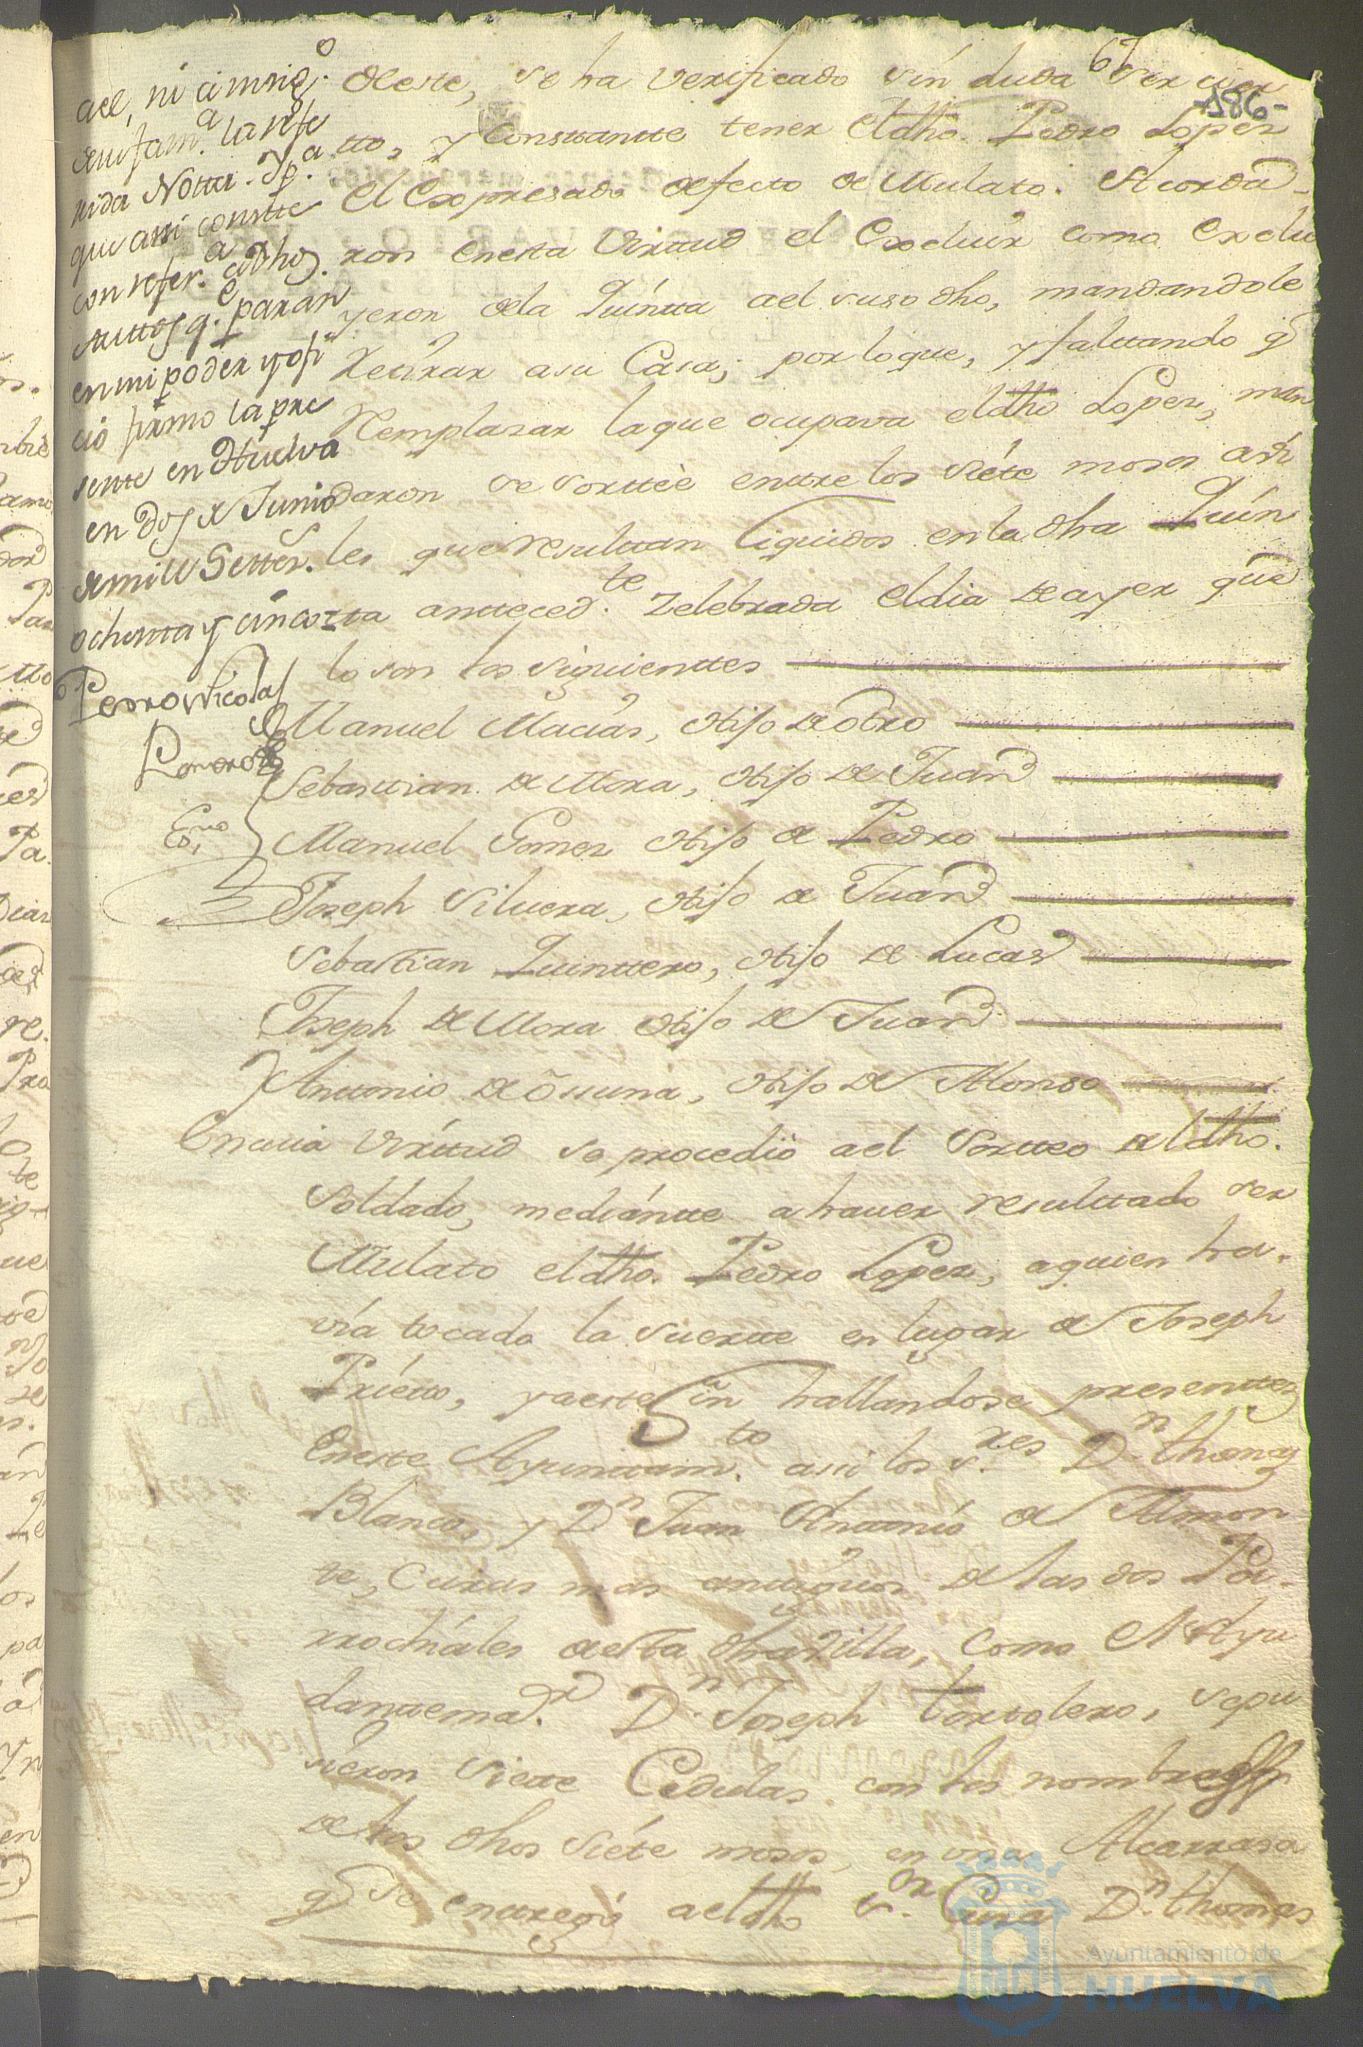 67
-186-
ael, ni a mrig.o
en fam.a la refe
rida Notta. Y p.a
que assi constte
con refer.a a dhos
Auttos q.e paran
en mi poder y ofi
cio firmo la pre
sente en Huelva
en dos de Junio
de mill Settez.s
ochenta y cinco
Pedro Nicolas
Romero
Esno
Deste, se ha verificado sin duda ser cier
tto, y Constantte tener el dho. Pedro Lopez
el Expresado defecto de Mulato. Acorda-
ron en esta virttud el Excluir como Exclu
yeron dela Quintta ael suso dho, mandandole
Retirar a su Casa; por lo que, y faltando q.n
Remplasar la que ocupava el dho Lopez, man
daron se sorttèe enttre los siéte mosos avi
les que resulttan liquidos en la dha Quin
tta antteced.te Zelebrada el dia de ayer que
lo son los siguienttes
Manuel Macías, Hijo de Otro
Sebasttian de Mora, Hijo de Juan
Manuel Gomez Hijo de Pedro
Joseph Silvera, Hijo de Juan
Sebastian Quinttero, Hijo de Lucas
Joseph de Mora Hijo de Juan
Y Anttonio de Ossuna, Hijo de Alonso
En cuia virttud se procedió ael Sortteo del dho.
Soldado, mediántte a haver resulttado ser
Mulato el dho. Pedro Lopez, a quien ha-
vía tocado la suertte en lugar de Joseph
Prietto, y a este fin hallandose presenttes
En este Ayunttam.to assi los s.res D.n thomas
Blanco, y D.n Juan Anttonio de Almon
te, Curas mas anttiguos de las dos Pa-
rrochiales de esta dha Villa, como el Ayu
danttema.r D.n Joseph tortolero, se pu
sieron Siette Cedulas con los nombres
de los dhos siéte mosos, en una Alcarrasa
q.e se enttregó ael dho s.or Cura D.n thomas
Ayuntamiento de
HUELVA